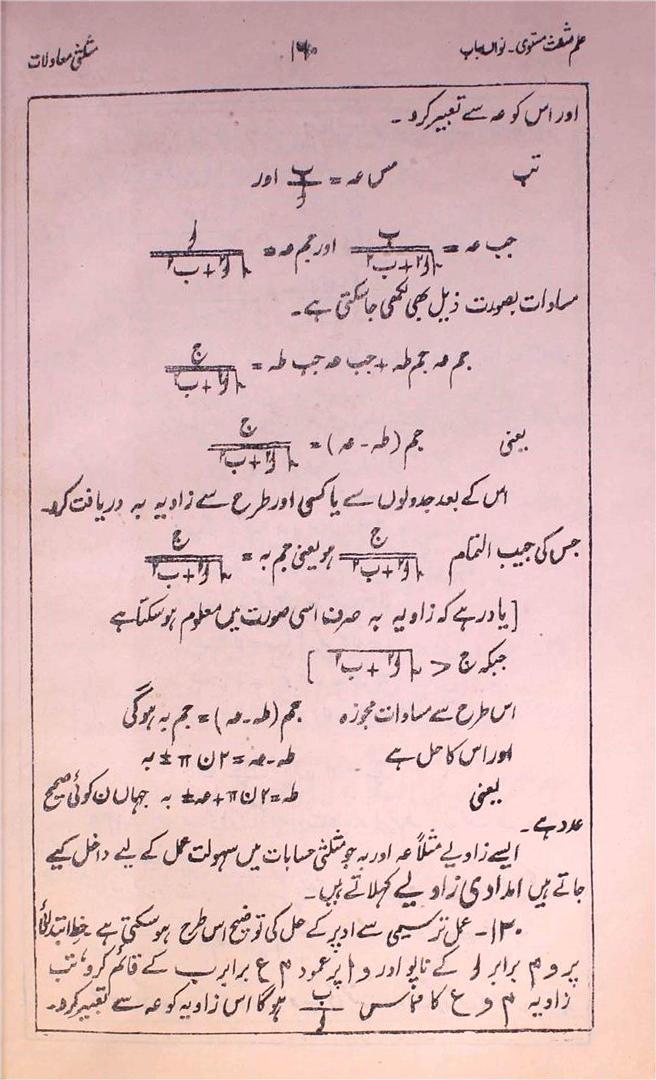 علم مثلث مستوی۔ نواں باب ۱۶۰ مثلثی معادلات
اور اس کو عہ سے تعبیر کرو۔
تب مس عہ = ب/و اور
جب عہ = ب/√(و۲ + ب۲) اور جم عہ = و/√(و۲ + ب۲)
مساوات بصورت ذیل بھی لکھی جاسکتی ہے۔
جم عہ جم طہ + جب عہ جب طہ = ج/√(و۲ + ب۲)
یعنی جم (طہ - عہ) = ج/√(و۲ + ب۲)
اس کے بعد جدولوں سے یا کسی اور طرح سے زاویہ بہ دریافت کرو۔
جس کی جیب التمام ج/√(و۲ + ب۲) ہو یعنی جم بہ = ج/√(و۲ + ب۲)
[یاد رہے کہ زاویہ بہ صرف اسی صورت میں معلوم ہوسکتا ہے
جبکہ ج < √(و۲ + ب۲) ]
اس طرح سے مساوات مجوزہ جم (طہ - عہ) = جم بہ ہوگی
اور اس کا حل ہے طہ - عہ = ۲ن π ± بہ
یعنی طہ = ۲ن π + عہ ± بہ جہاں ن کوئی صحیح
عدد ہے۔
ایسے زاویے مثلاً عہ اور بہ جو مثلثی حسابات میں سہولت عمل کے لیے داخل کیے
جاتے ہیں امدادی زاویے کہلاتے ہیں۔
۱۳۰۔ عمل ترسیمی سے اوپر کے حل کی توضیح اس طرح ہوسکتی ہے خط ابتدائی
پر و م برابر و کے ناپو اور و ا پر عمود م ع برابر ب کے قائم کرو، تب
زاویہ م و ع کا مماس ب/و ہوگا اس زاویہ کو عہ سے تعبیر کرو۔